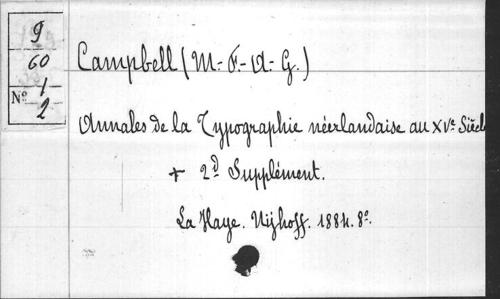 9
60
1
Nº 2
Campbell (M.-F.-A.-G.)
Annales de la Typographie néerlandaise au XVe Siècle
+ 2d Supplément.
La Haye. Nijhoff. 1884. 8º.